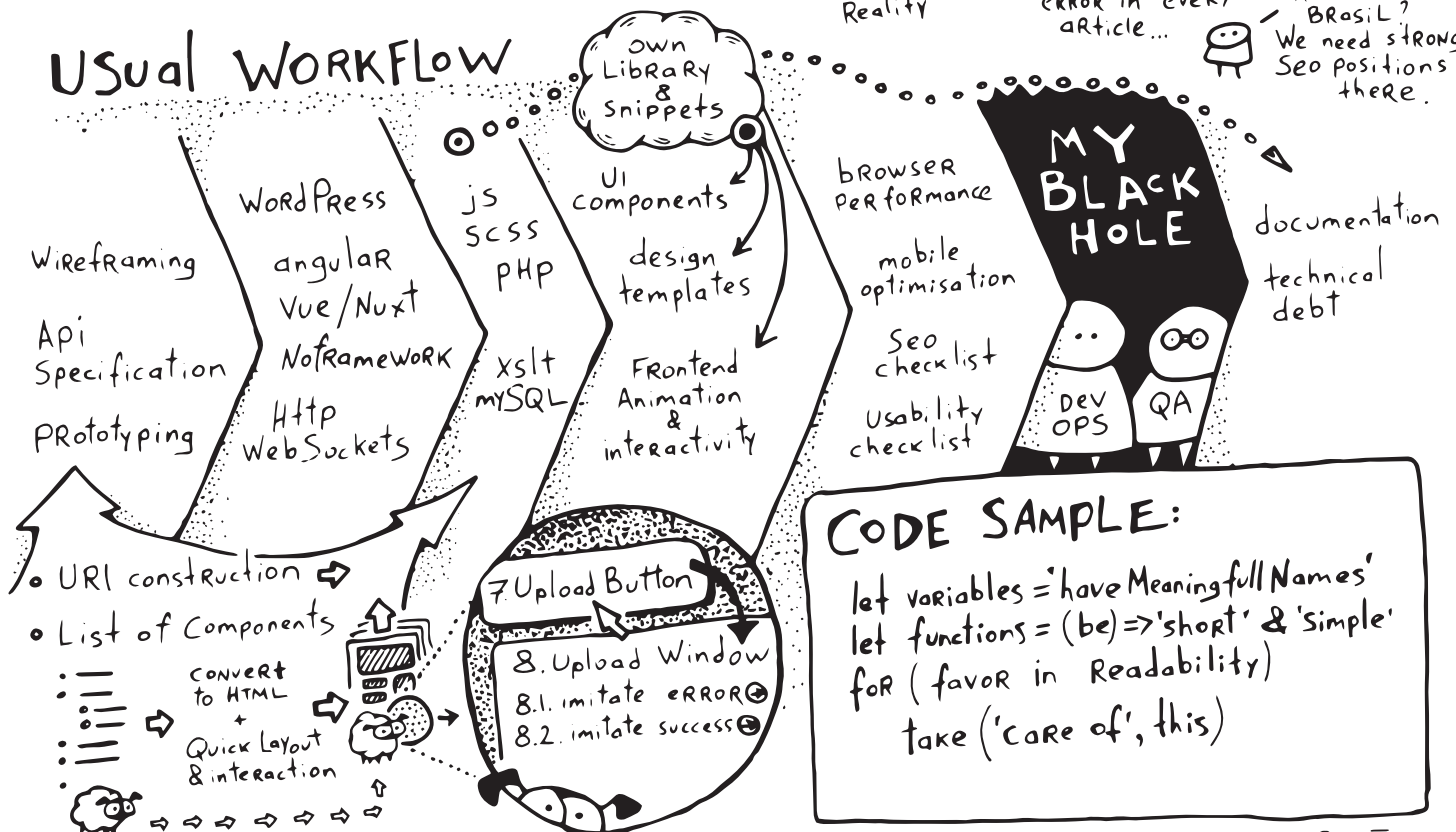 Reality
ERROR in every
article...
BRasiL?
We need strong
Seo positions
there.
Usual Workflow
own
LibRaRy
&
Snippets
WiRefRaming
Api
Specification
PRototyping
WoRdPress
angulaR
Vue/Nuxt
NofRamewoRk
Http
WebSockets
js
scss
PHP
xslt
mySQL
UI
components
design
templates
FRontend
Animation
&
inteRactivity
bRowseR
PeRfoRmance
mobile
optimisation
Seo
checklist
Usability
checklist
MY
BLACK
HOLE
DEV
OPS
QA
documentation
technical
debt
URI constRuction
List of Components
conveRt
to HTML
+
Quick Layout
& inteRaction
7. Upload Button
8. Upload Window
8.1. imitate eRROR
8.2. imitate success
CODE SAMPLE:
let vaRiables = 'have Meaningfull Names'
let functions = (be) => 'shoRt' & 'Simple'
foR ( favoR in Readability)
take ('caRe of', this)